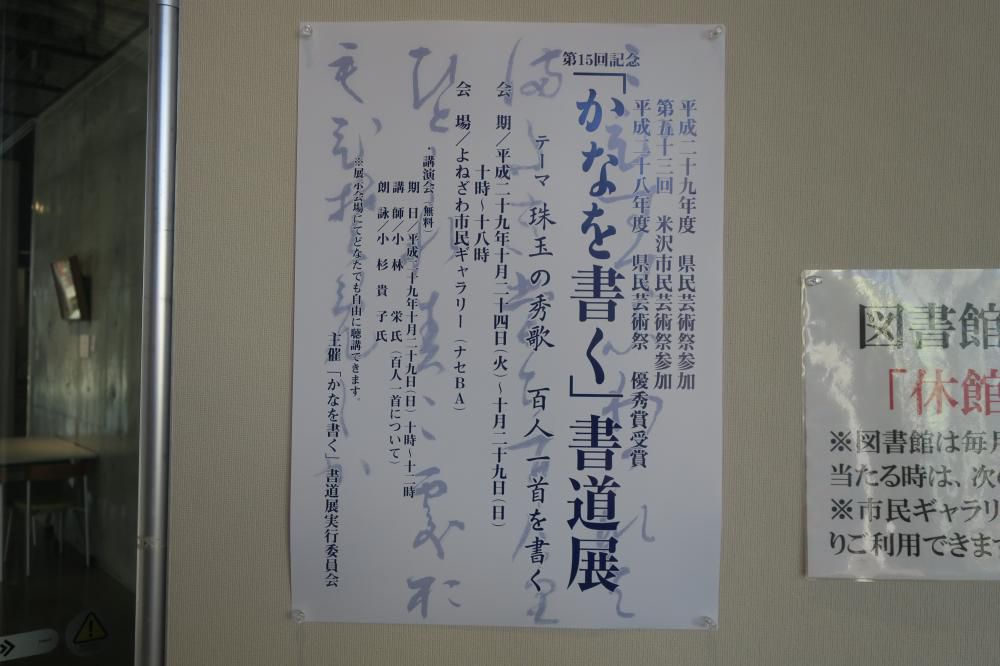 平成二十九年度 県民芸術祭参加
第五十三回 米沢市民芸術祭参加
平成二十八年度 県民芸術祭 優秀賞受賞
第15回記念
「かなを書く」書道展
テーマ 珠玉の秀歌 百人一首を書く
会 期/平成二十九年十月二十四日(火)~十月二十九日(日)
十時~十八時
会 場/よねざわ市民ギャラリー(ナセBA)
・講演会(無料)
期 日/平成二十九年十月二十九日(日)十時~十二時
講 師/小 林 栄 氏(百人一首について)
朗 詠/小 杉 貴 子 氏
※展示会場にてどなたでも自由に聴講できます。
主催「かなを書く」書道展実行委員会
図書館
「休館
※図書館は毎月
当たる時は、次の
※市民ギャラリ
りご利用できます